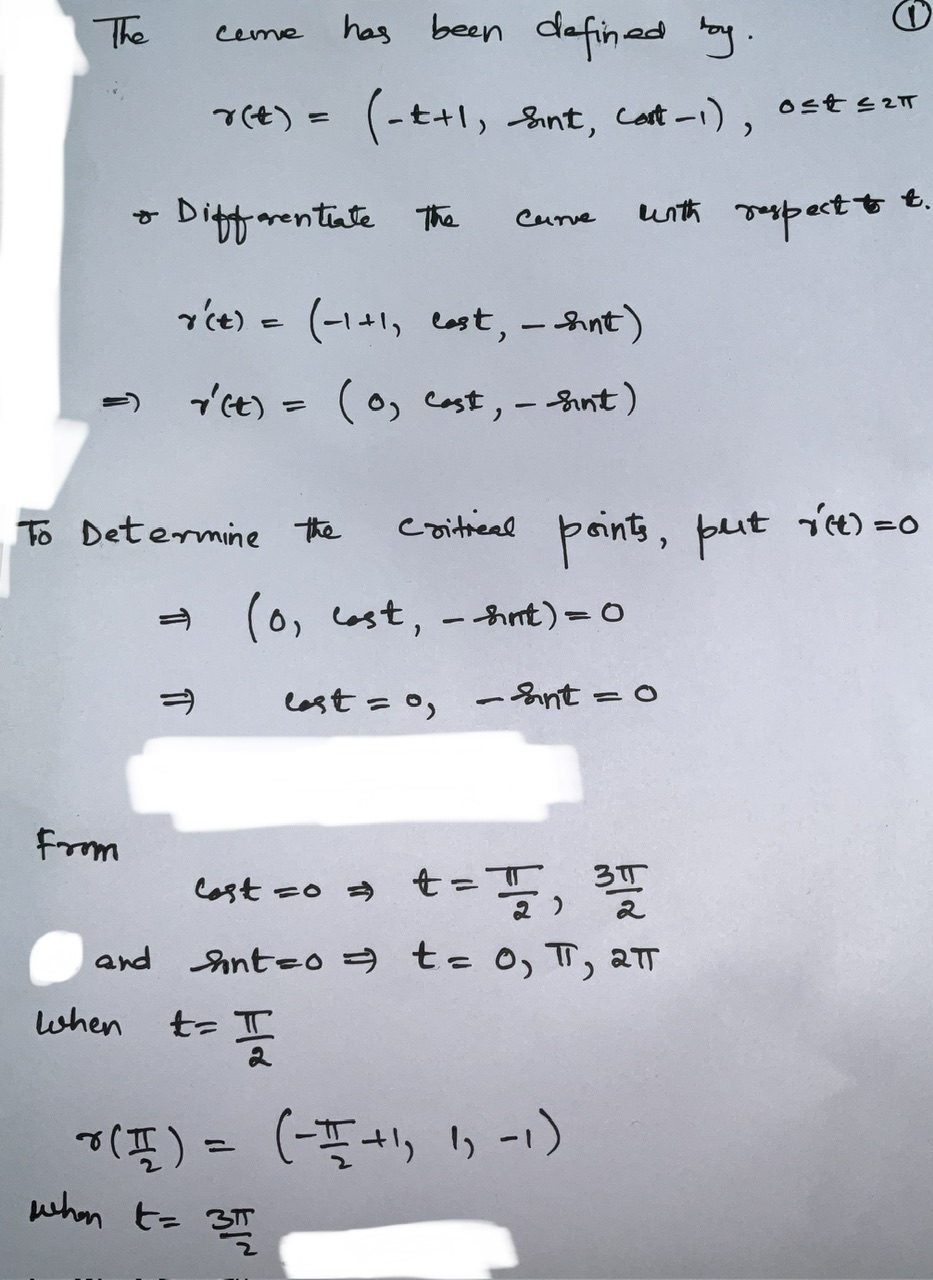 ①
The curve has been defined by.
r(t) = (-t+1, sint, cost-1), 0≤t≤2π
Differentiate the curve with respect to t.
r'(t) = (-1+1, cost, -sint)
⇒ r'(t) = (0, cost, -sint)
To Determine the critical points, put r'(t)=0
⇒ (0, cost, -sint)=0
⇒ cost=0, -sint=0
From
cost=0 ⇒ t=π/2, 3π/2
and sint=0 ⇒ t=0, π, 2π
when t=π/2
r(π/2) = (-π/2+1, 1, -1)
when t=3π/2